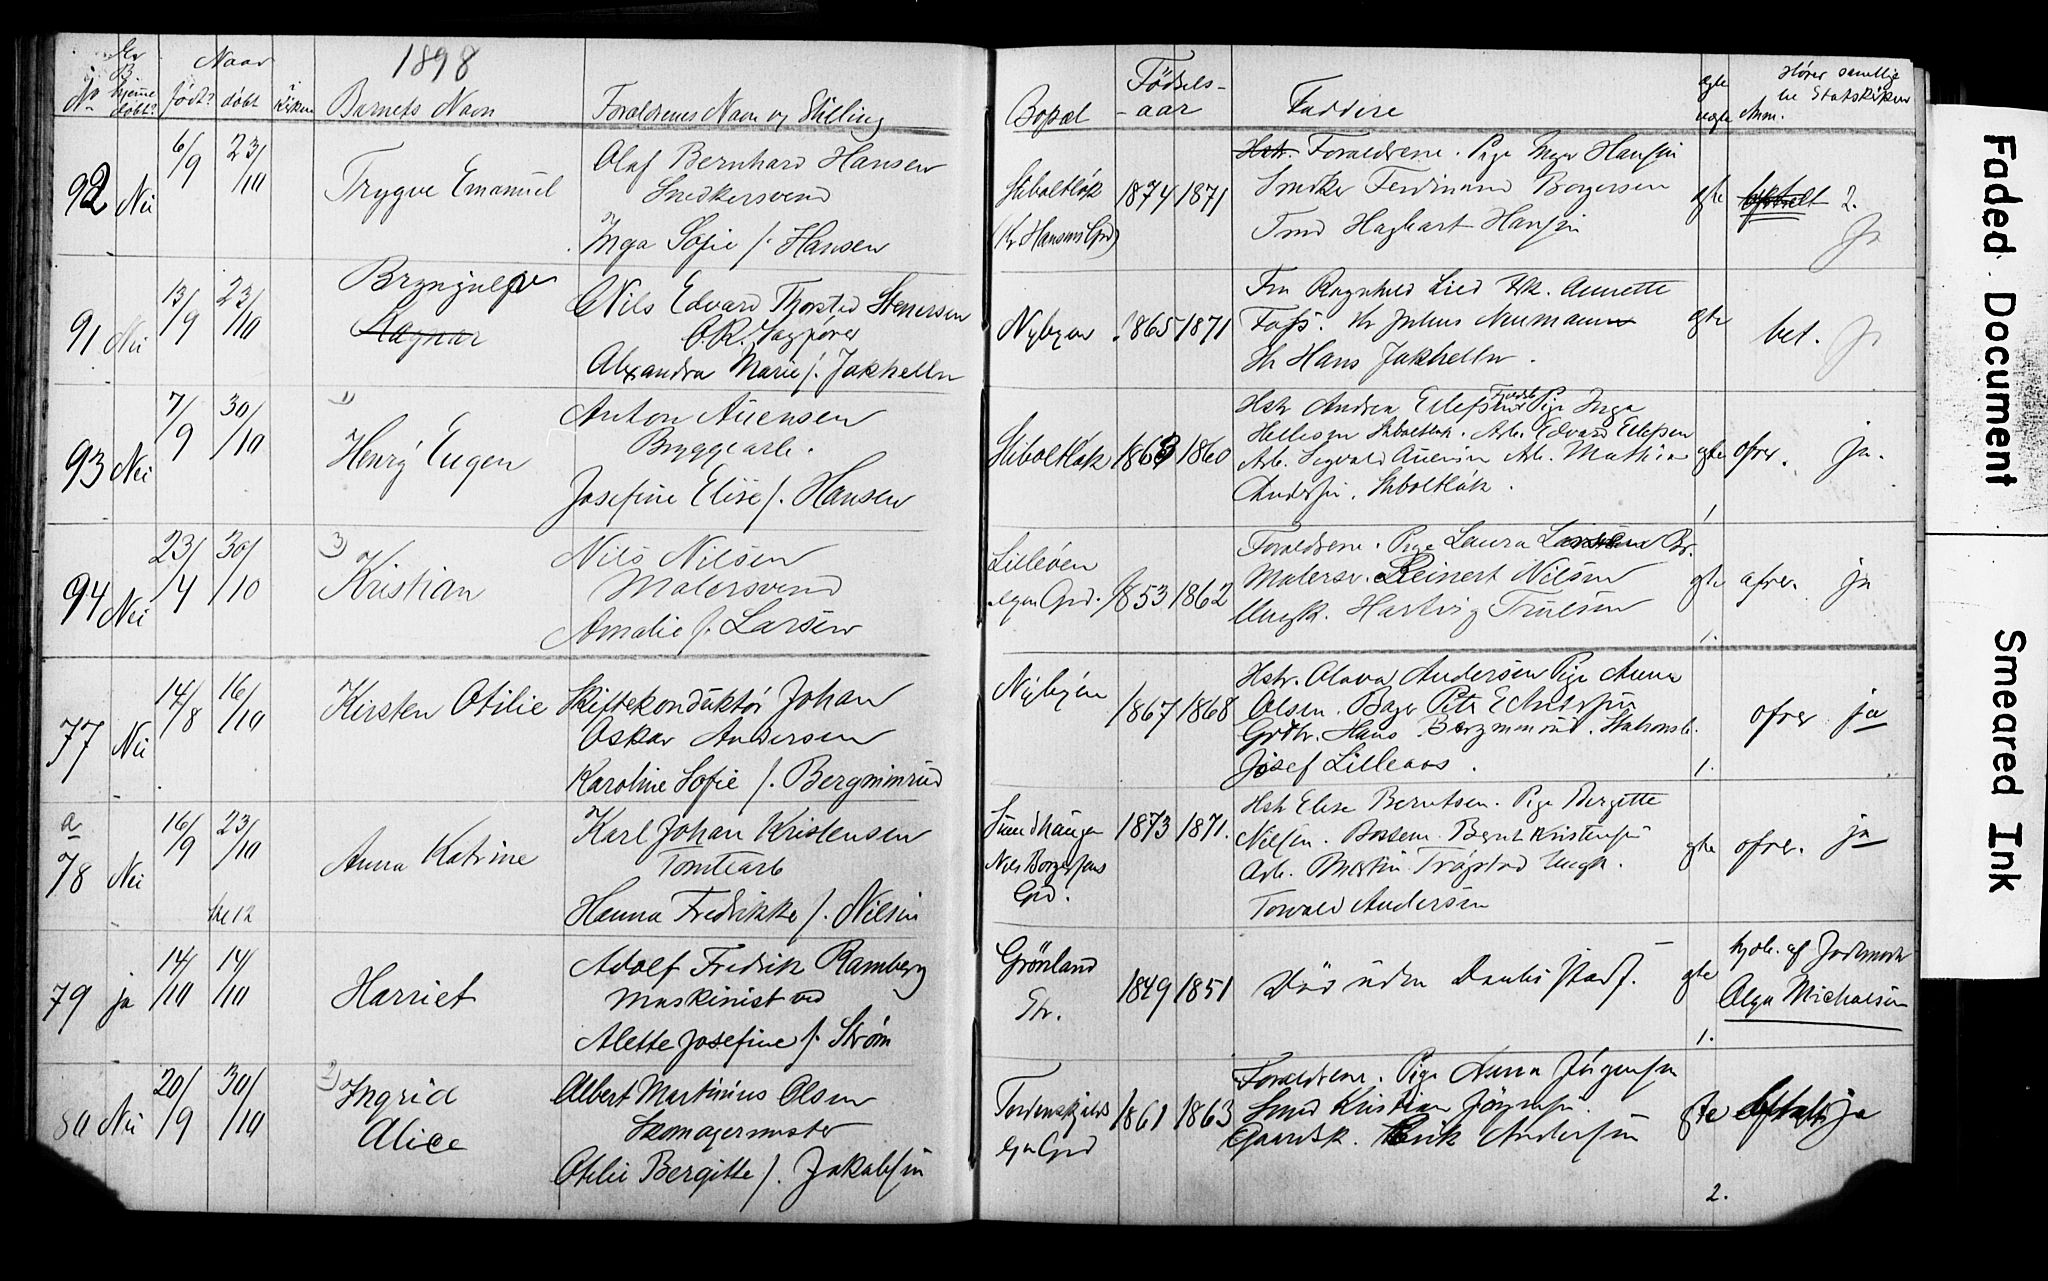 1898
No
Er B. hjemme døbt?
Naar
født? døbt
i Kirken
Barnets Navn
Forældrenes Navn og Stilling
Bopæl
Fødsels-
-aar
Faddere
ægte
uægte
Hører samtlige
til Statskirken
Anm.
92 Nei 6/9 23/10 Trygve Emanuel
Olaf Bernhard Hansen
Snedkersvend
Inga Sofie f. Hansen
(Kr Hansens Grd)
1874 1871
Hstr. Forældrene. Pige Inga Hansen
Smed Ferdinand Borgersen
Tmd Hagbart Hansen
gte 2.
Ja
91 Nei 13/9 23/10 Brynjulf
Ragnar
Nils Edvard Thorsted Stenersen
O.R. Sagfører
Alexandra Marie f. Jakhelln
Nybyen 1865 1871
Fru Ragnhild Lied Frk. Annette
Foss. Hr Julius Neumann
Hr Hans Jakhelln.
gte bet. Ja
93 Nei 7/9 30/10 1) Henry Eugen
Anton Auensen
Bryggearb.
Josefine Elise f. Hansen
1863 1860
Hstr Andrea Ellefsen Pige Inga
Arb. Edvard Ellefsen
Arb. Sigvald Auensen Arb. Mathias
Andersen.
gte ofrer. ja.
1.
94 Nei 23/4 30/10 3) Kristian
Nils Nilsen
Malersvend
Amalie f. Larsen
Lilleøen
egen Grd. 1853 1862
Forældrene. Pige Laura Larsen Br.
Malersv. Reinert Nilsen
Ungk. Hartvig Truelsen
gte ofrer. ja
1.
77 Nei 14/8 16/10 Kirsten Otilie
Skiftekonduktør Johan
Oskar Andersen
Karoline Sofie f. Bergminrud
Nybyen 1867 1868
Hstr. Olava Andersen Pige Anna
Olsen. Bager Petr
Grdbr. Hans Bergminrud. Stationsb.
Josef Lilleaas.
ofrer ja
1.
a
78 Nei 16/9 23/10 Anna Katrine
kl 12
Karl Johan Kristensen
Tomtearb
Hanna Fredrikke f. Nilsen
Sundhaugen
Nils Borgersens
Grd.
1873 1871.
Hstr Elise Berntsen. Pige Birgitte
Nilsen. Bernt Kristensen
Arb. Martin Trøgstad Ungk.
Torvald Andersen
gte ofrer. ja
79 ja 14/10 14/10 Harriet
Adolf Fredrik Ramberg
Maskinist ved
Alette Josefine f. Strøm
Grønland
Str.
1849 1851
Død uden Daabs stadf.
gte
hjdb. af Jordmoder
Olga Michaelsen
1.
80 Nei 20/9 30/10 2) Ingrid
Alice
Albert Martinius Olsen
Skomagermester
Otilie Bergitte f. Jakobsen
Tordenskjolds
egen Grd
1861 1863
Forældrene. Pige Anna Jørgensen
Smed Kristian Jørgensen.
Gaardsk. Andersen
gte ja
2.
Faded Document
Smeared Ink